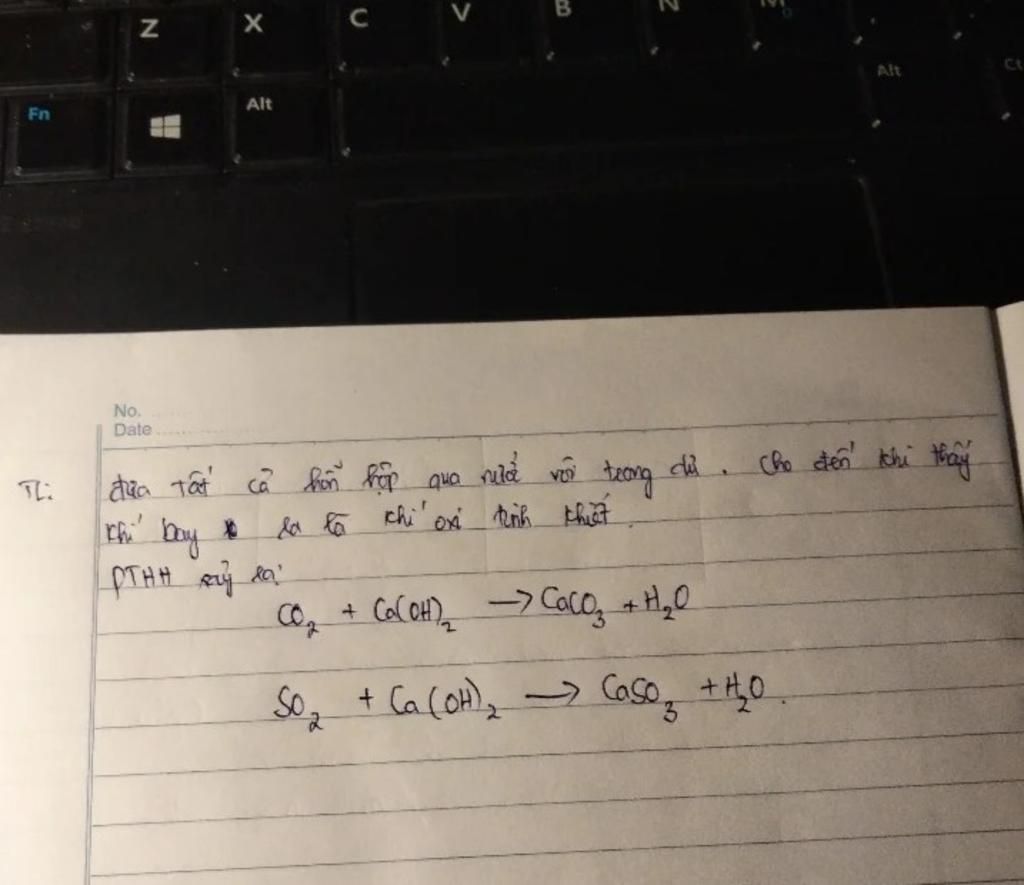 Z X C V B N M
Fn Alt Alt Ct
No.
Date
TL: đưa tất cả hỗn hợp qua nước vôi trong dư. Cho đến khi thấy
khí bay ra là khí oxi tinh khiết.
PTHH xảy ra:
CO₂ + Ca(OH)₂ → CaCO₃ + H₂O
SO₂ + Ca(OH)₂ → CaSO₃ + H₂O.